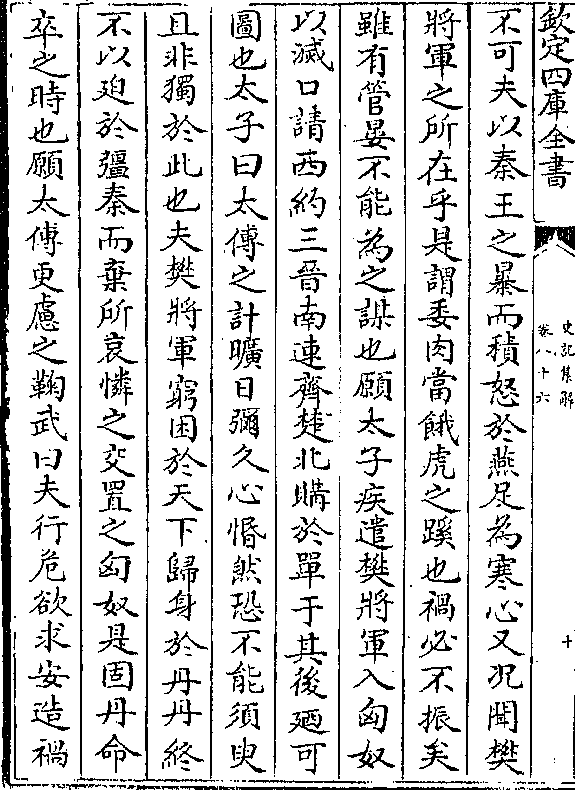 欽定四庫全書
史記集解
卷八十六
十
不可夫以秦王之暴而積怒於燕足為寒心又况聞樊
將軍之所在乎是謂委肉當餓虎之蹊也禍必不振矣
雖有管晏不能為之謀也願太子疾遣樊將軍入匈奴
以滅口請西約三晉南連齊楚北購於單于其後廼可
圖也太子曰太傅之計曠日彌久心惛然恐不能須臾
且非獨於此也夫樊將軍窮困於天下歸身於丹丹終
不以廹於彊秦而棄所哀憐之交置之匈奴是固丹命
卒之時也願太傅更慮之鞠武曰夫行危欲求安造禍